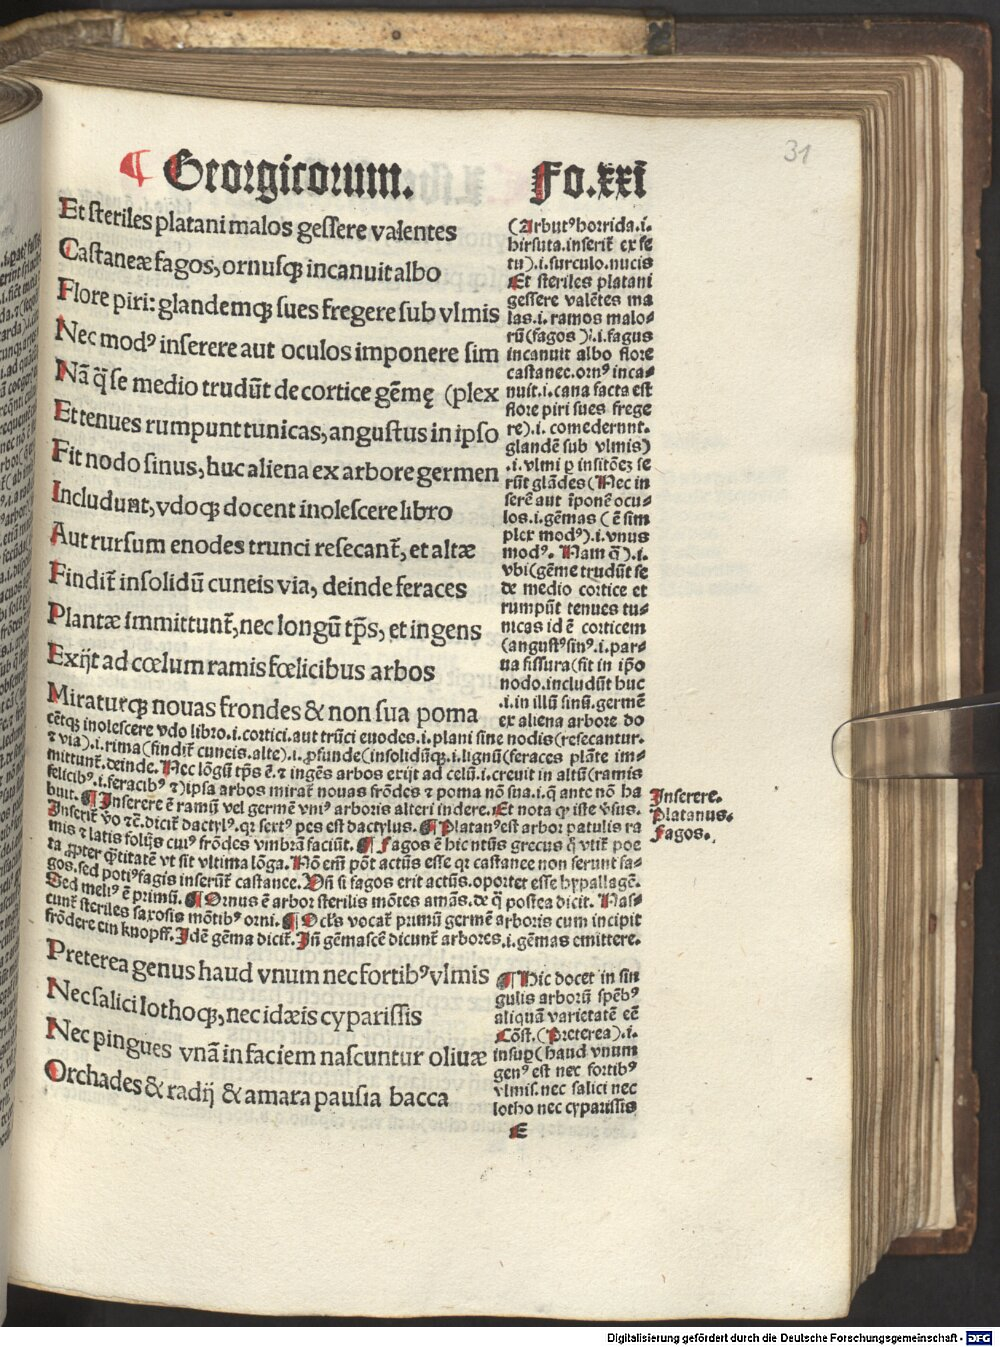 31
¶ Georgicorum. Fo.xxi
Et steriles platani malos gessere valentes
Castaneæ fagos, ornusqꝫ incanuit albo
Flore piri: glandemqꝫ sues fregere sub vlmis
Nec modꝰ inserere aut oculos imponere sim
Nã q̃ se medio trudũt de cortice gẽmę (plex
Et tenues rumpunt tunicas, angustus in ipso
Fit nodo sinus, huc aliena ex arbore germen
Includunt, vdoqꝫ docent inolescere libro
Aut rursum enodes trunci resecant̃, et altæ
Findit̃ in solidũ cuneis via, deinde feraces
Plantæ immittunt̃, nec longũ tp̃s, et ingens
Exijt ad cœlum ramis fœlicibus arbos
Miraturqꝫ nouas frondes & non sua poma
(Arbutꝰ horrida.i.
hirsuta.inserit̃ ex fe
tu).i.surculo.nucis
Et steriles platani
gessere valẽtes ma
los.i.ramos malo⸗
rũ(fagos).i.fagus
incanuit albo flore
castanee.ornꝰ inca⸗
nuit.i.cana facta est
flore piri sues frege
re).i. comederunt.
glandẽ sub vlmis)
.i.vlmi ꝑ insitõeꝫ fe
rũt glãdes(Nec in
serẽ aut ĩponẽ ocu⸗
los.i.gẽmas (ẽ sim
plex modꝰ).i.vnus
modꝰ. Nam q̃).i.
vbi(gẽme trudũt se
de medio cortice et
rumpũt tenues tu⸗
nicas id ẽ corticem
(angustꝰ sinꝰ.i.par⸗
ua fissura(fit in ip̃o
nodo.includũt huc
.i.in illũ sinũ.germẽ
ex aliena arbore do
cẽtqꝫ inolescere vdo libro.i.cortici.aut trũci enodes.i.plani sine nodis(resecantur.
⁊ via).i.rima(findit̃ cuneis.alte).i.ꝓfunde(in solidũqꝫ.i.lignũ(feraces plãte im⸗
mittunt̃.deinde. Nec lõgũ tp̃s ẽ.⁊ ingẽs arbos exijt ad celũ.i.creuit in altũ(ramis
felicibꝰ.i.feracibꝰ ⁊)ipsa arbos mirat̃ nouas frõdes ⁊ poma nõ sua.i.q̃ ante nõ ha
buit. ¶ Inserere ẽ ramũ vel germẽ vniꝰ arboris alteri indere. Et nota qꝫ iste v̉sus.
Inserit̃ v̉o ⁊c̃.dicit̃ dactylꝰ.qꝛ sextꝰ pes est dactylus. ¶ Platanꝰ est arbor patulis ra
mis ⁊ latis folijs cuiꝰ frõdes vmbrã faciũt. ¶ Fagos ẽ hic ntũs grecus q̃ vtit̃ poe
ta ꝓpter q̃titatẽ vt sit vltima lõga. Nõ em̃ põt actũs esse qꝛ castanee non ferunt fa⸗
gos.sed potiꝰ fagis inserũt̃ castanee. Vñ si fagos erit actũs.oportet esse hypallagẽ.
Sed meliꝰ ẽ primũ. ¶ Ornus ẽ arbor sterilis mõtes amãs.de q̃ postea dicit. Nas⸗
cunt̃ steriles saxosis mõtibꝰ orni. ¶ Ocl̃s vocat̃ primũ germẽ arboris cum incipit
frõdere ein knopff. Idẽ gẽma dicit̃. Iñ gẽmascẽ dicunt̃ arbores.i.gẽmas emittere.
Inserere.
Platanus.
Fagos.
Preterea genus haud vnum nec fortibꝰ vlmis
Nec salici lothoqꝫ, nec idæis cyparissis
Nec pingues vnã in faciem nascuntur oliuæ
Orchades & radij & amara pausia bacca
¶ Hic docet in sin
gulis arborũ spẽbꝰ
aliquã varietatẽ eẽ
Cõst.(Preterea).i.
insuꝑ(haud vnum
genꝰ est nec fortibꝰ
vlmis.nec salici nec
lotho nec cyparissis
E
Digitalisierung gefördert durch die Deutsche Forschungsgemeinschaft - DFG